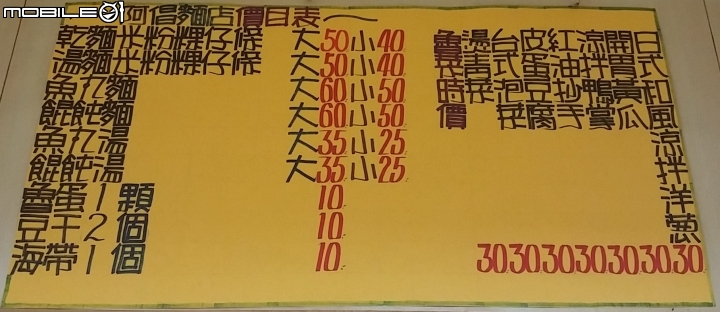 mobile01
阿倡麵店價目表一
乾麵米粉粿仔條 大50小40
湯麵米粉粿仔條 大50小40
魚丸麵 大60小50
餛飩麵 大60小50
魚丸湯 大35小25
餛飩湯 大35小25
魯蛋1顆 10
豆干2個 10
海帶1個 10
日式和風涼拌洋蔥 30
開胃黃瓜 30
涼拌鴨掌 30
紅油抄手 30
皮蛋豆腐 30
台式泡菜 30
湯青菜 30
魯菜時價